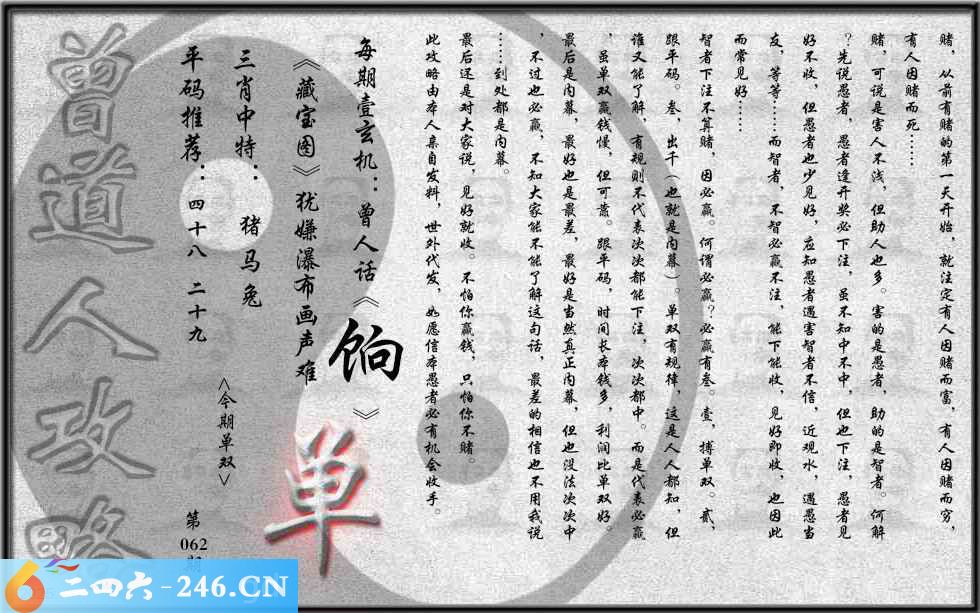 赌，从前有赌的第一天开始，就注定有人因赌而富，有人因赌而穷，
有人因赌而死……
赌，可说是害人不浅，但助人也多。害的是愚者，助的是智者。何解
？先说愚者，愚者逢开奖必下注，虽不知中不中，但也下注，愚者见
好不收，但愚者也少见好，应知愚者遇害智者不信，近观水，遇愚当
友，等等……而智者，不智必赢不注，能下能收，见好即收，也因此
而常见好……
智者下注不算赌，因必赢。何谓必赢？必赢有叁。壹，搏单双。贰，
跟平码。叁，出千（也就是内幕）。单双有规律，这是人人都知，但
谁又能了解，有规则不代表次次都能下注，次次都中。而是代表必赢
，虽单双赢钱慢，但可靠。跟平码，时间长本钱多，利润比单双好。
最后是内幕，最好也是最差，最好是当然真正内幕，但也没法次次中
，不过也必赢，不知大家能不能了解这句话，最差的相信也不用我说
……到处都是内幕。
最后还是对大家说，见好就收。不怕你赢钱，只怕你不赌。
此攻略由本人亲自发料，世外代发，如愿信本愚者必有机会收手。
每期壹玄机：曾人话《饷》
《藏宝图》犹嫌瀑布画声难
单
三肖中特：猪马兔
<今期单双>
平码推荐：四十八 二十九
第062期
曾道人攻略
二四六-246.CN